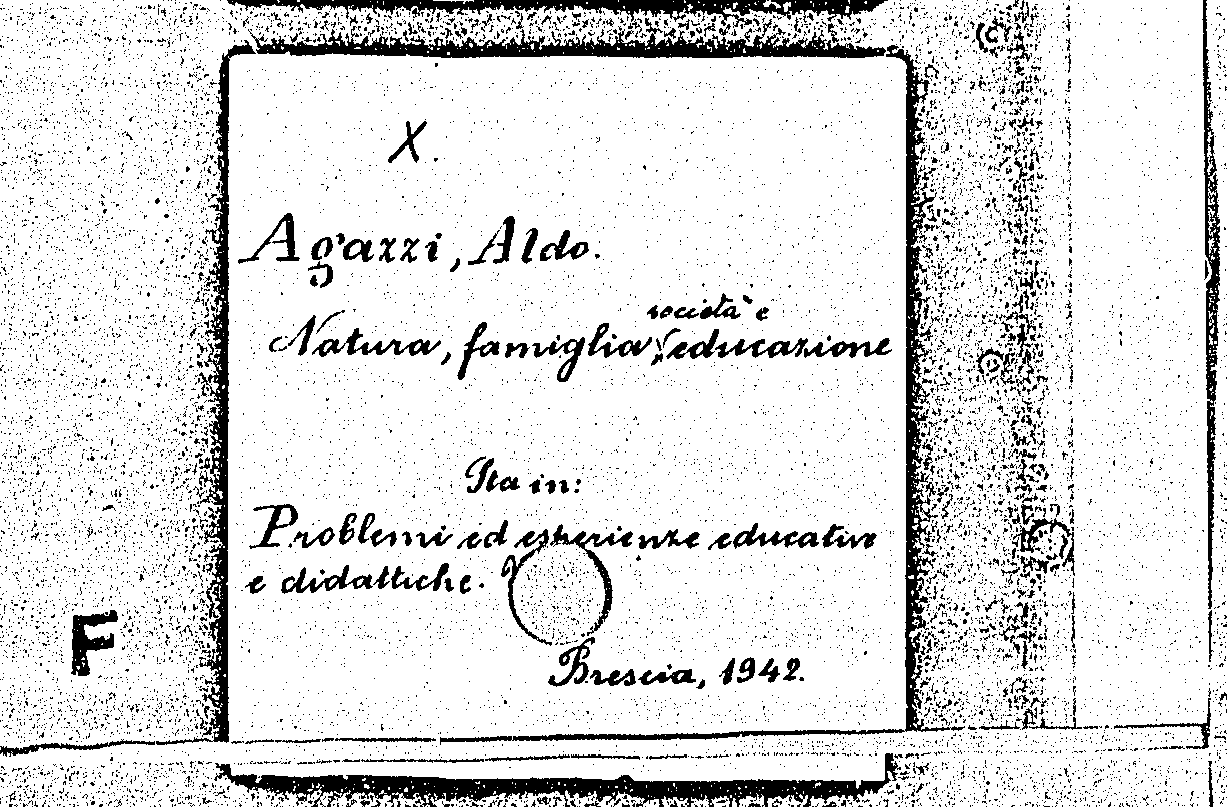 X.
Agazzi, Aldo.
società e
Natura, famiglia, educazione
Sta in:
Problemi ed esperienze educative
e didattiche.
Brescia, 1942.
F